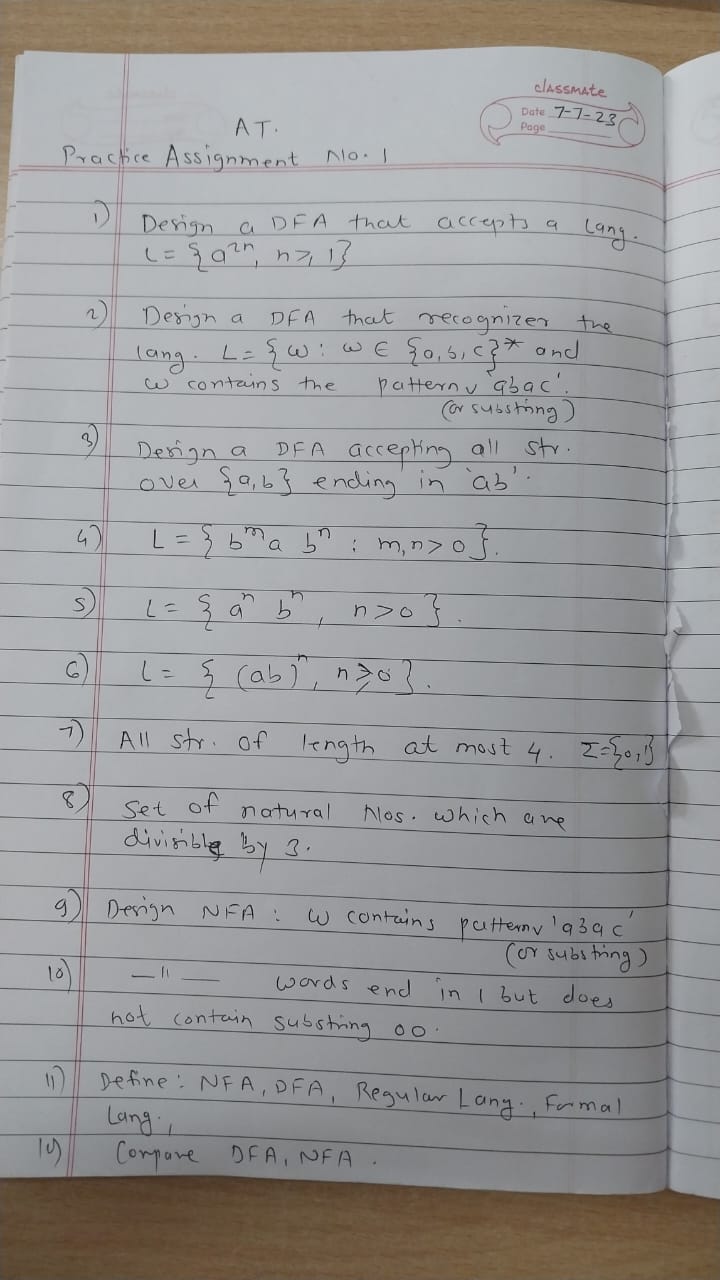 classmate
Date 7-7-23
Page
AT.
Practice Assignment No. 1
1) Design a DFA that accepts a lang.
L = {a²ⁿ, n ≥ 1}
2) Design a DFA that recognizer the
lang. L = { w : w ∈ {a, b, c}* and
w contains the pattern 'abac'.
(or substring)
3) Design a DFA accepting all str.
over {a, b} ending in 'ab'.
4) L = { bᵐ a bⁿ : m, n > 0 }.
5) L = { aⁿ bⁿ, n > 0 }.
6) L = { (ab)ⁿ, n ≥ 0 }.
7) All str. of length at most 4. Σ = {0, 1}
8) Set of natural Nos. which are
divisible by 3.
9) Design NFA : w contains pattern 'abac'
(or substring)
10) —"— words end in 1 but does
not contain substring 00.
11) Define : NFA, DFA, Regular Lang., Formal
Lang.,
12) Compare DFA, NFA.